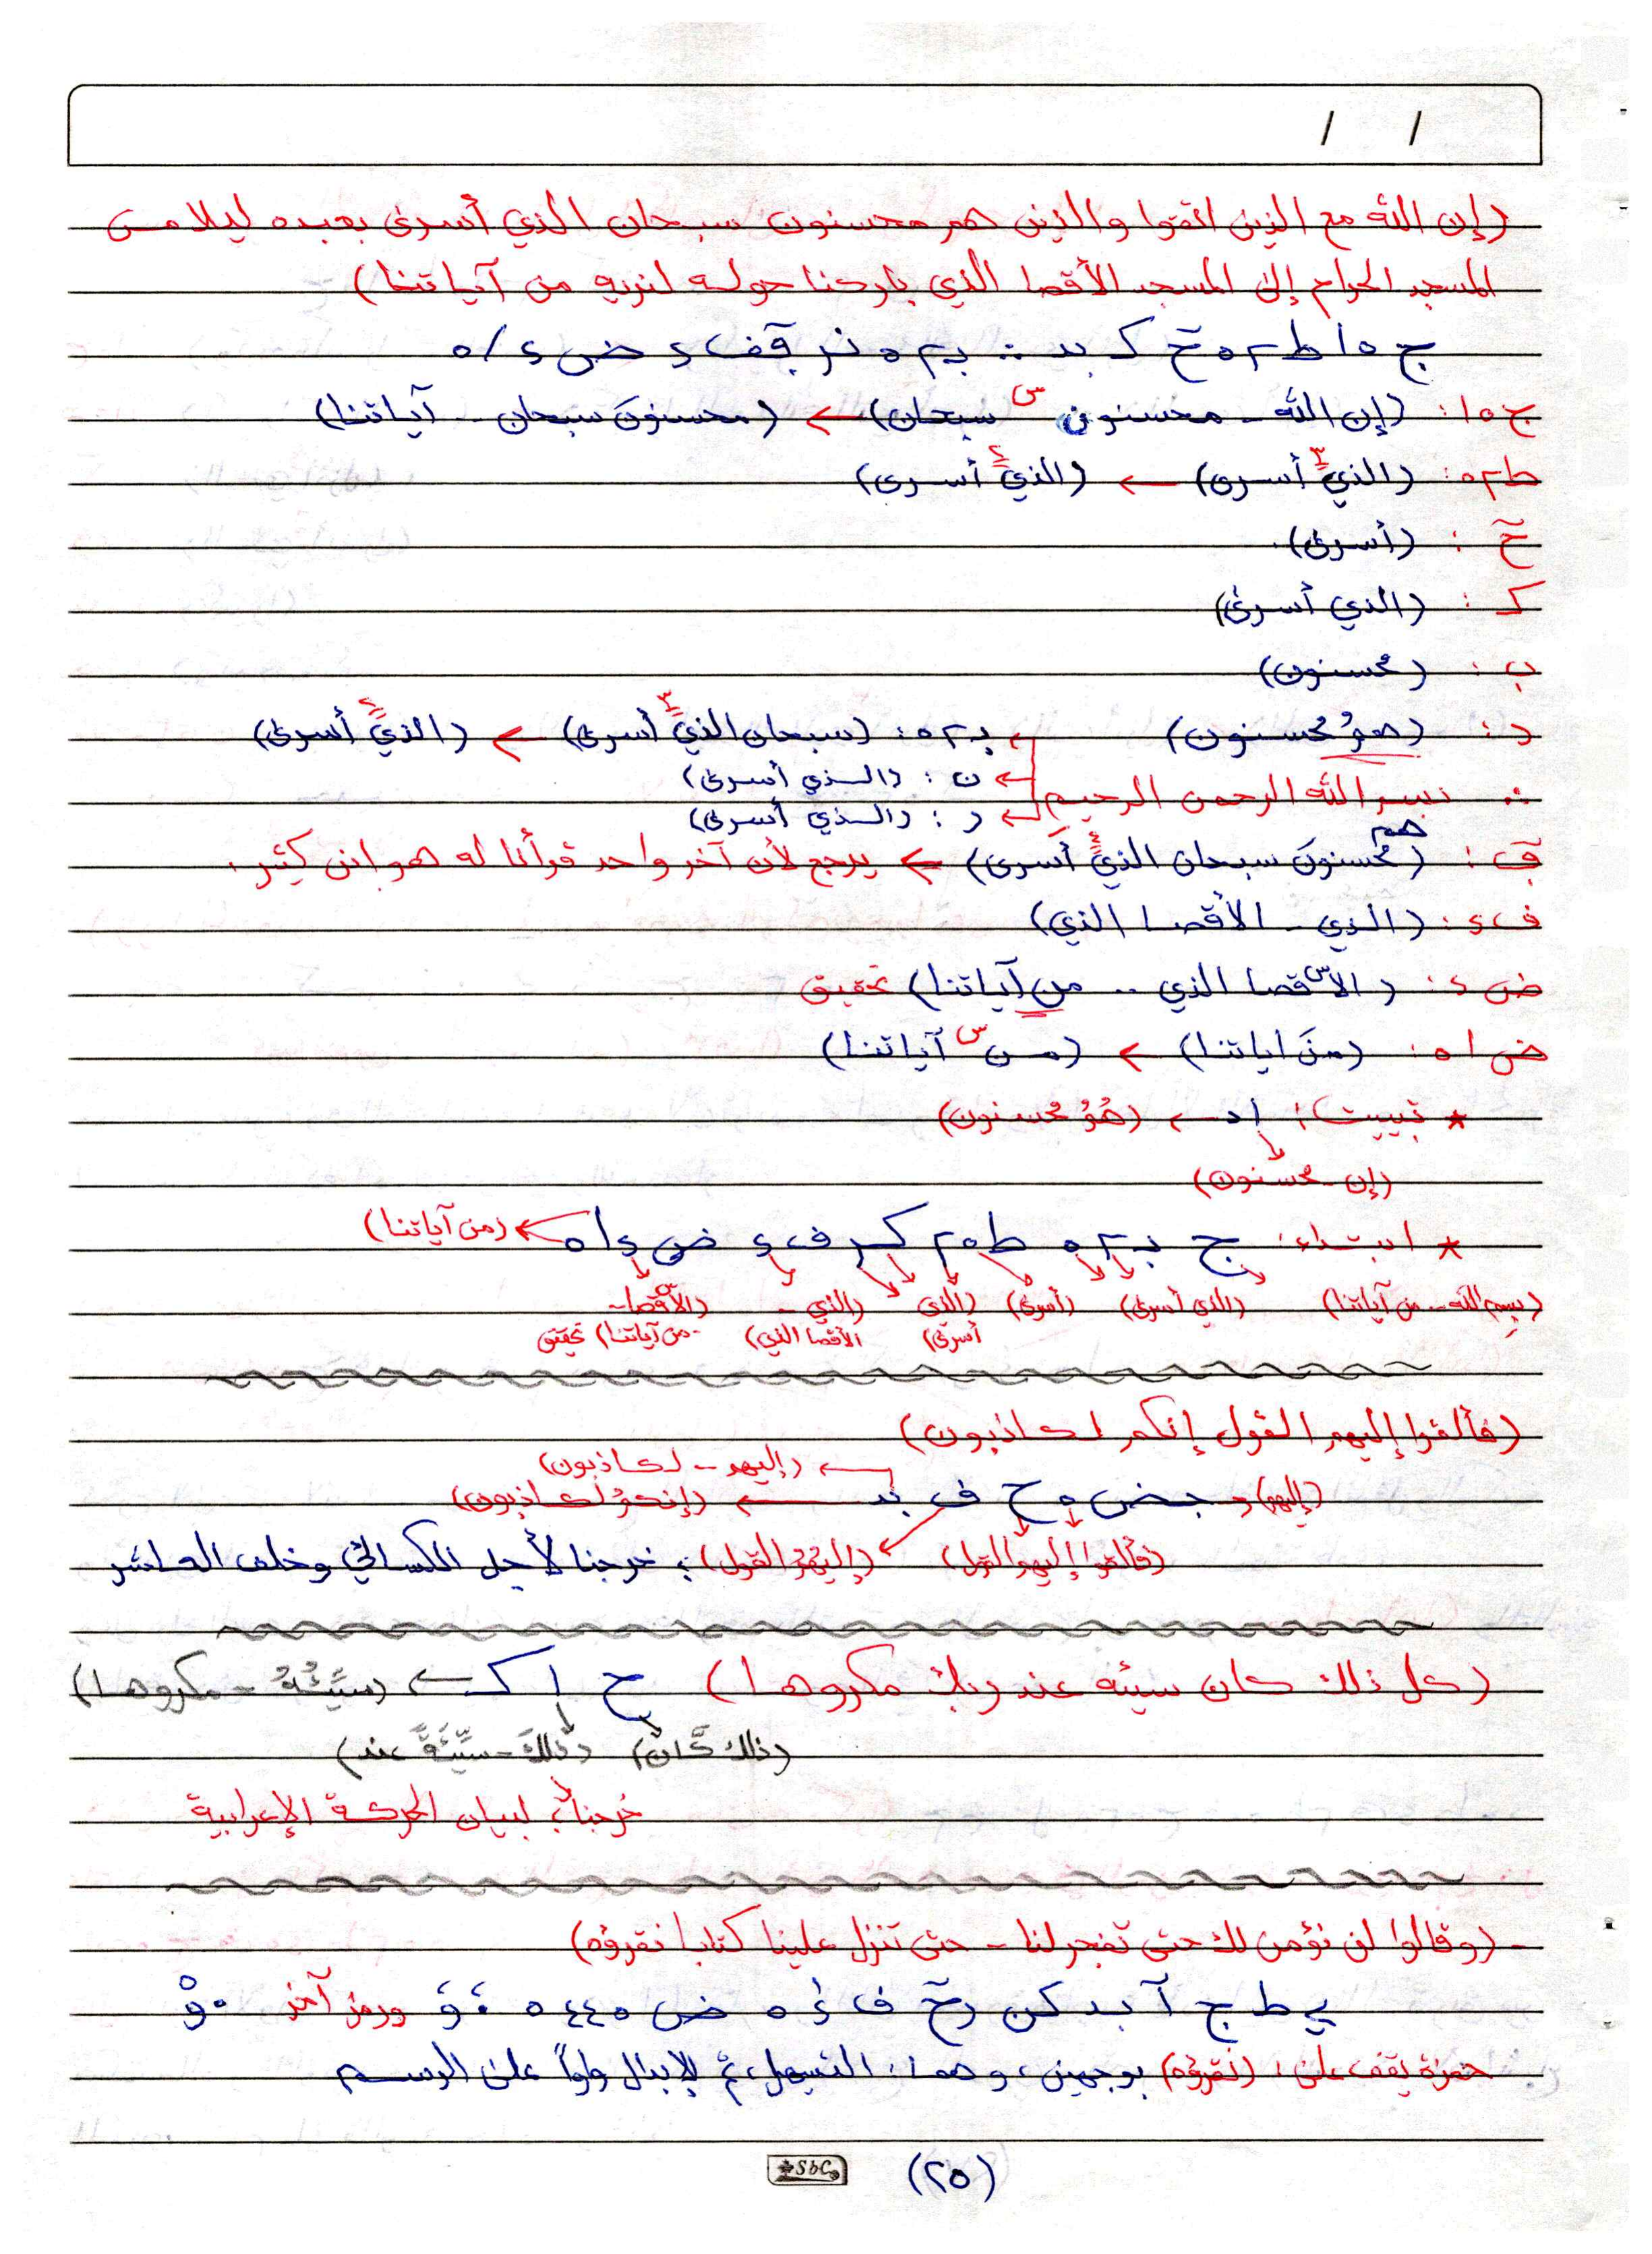 / /
(إن الله مع الذين اتقوا والذين هم محسنون سبحان الذي أسرى بعبده ليلا من
المسجد الحرام إلى المسجد الأقصا الذي باركنا حوله لنريه من آياتنا)
ج ٥ ا ط ٢ ٥ حٓ ک بد ∴ بـ ٢ ٥ نر قٓف ٤ ض ٤ / ٥
ج ٥ ا : (إن الله - محسنون س سبحان) ← (محسنونَ سبحان - آياتنا)
ط ٢ ٥ : (الذيٓ ٣ أسرى) ← (الذيٓ ٤ أسرى)
حٓ : (أسرى).
ک : (الذي أسرى)
ب : (محسنون)
د : (همُو محسنون) بـ ٢ ٥ : (سبحان الذيٓ ٣ أسرى) ← (الذيٓ ٤ أسرى)
ن : (الذي أسرى)
∴ بسم الله الرحمن الرحيم
ر : (الذي أسرى)
قٓ : (هم محسنونَ سبحان الذيٓ ٤ أسرى) ← يرجع لأن آخر واحد قرأنا له هو ابن كثير.
ف ٤ : (الذي - الأقصا الذي)
ض ٤ : (الأس قصا الذي .. من آياتنا) تحقيق
ض ا ٥ : (منَ اياتنا) ← (من س آياتنا)
* تبييت: ا د ← (همُو محسنون)
(إن - محسنون)
* ابتداء: ج بـ ٢ ٥ ط ٥ ٢ کر ف ٤ ض ٤ ا ٥ ← (من آياتنا)
(بسم الله .. من آياتنا) (الذي أسرى) (أسرى) (الذي أسرى) (الذي - الأقصا الذي) (الأس قصا - من آياتنا) تحقيق
(فألقوا إليهم القول إنكم لكاذبون)
← (إليهم - لكاذبون)
(إليهم) جـ ض ٥ ح ف بد ← (إنكمُو لكاذبون)
(فألقوا إليهم القول) (إليهُمُ القول) ؛ خرجنا لأجل الكسائي وخلف العاشر
(كل ذلك كان سيئه عند ربك مكروها) ح ا ک ← (سَيِّئُهُ - مكروها)
(ذلك كَّان) (ذلكَ - سيِّئَةً عند)
خرجنا؛ لبيان الحركة الإعرابية
- (وقالوا لن نؤمن لك حتى تفجر لنا - حتى تنزل علينا كتابا نقرؤه)
حمزة يقف على: (نقرؤه) بوجهين، وهما: التسهيل، ثم الإبدال واواً على الرسم
(٢٥)
Sbc